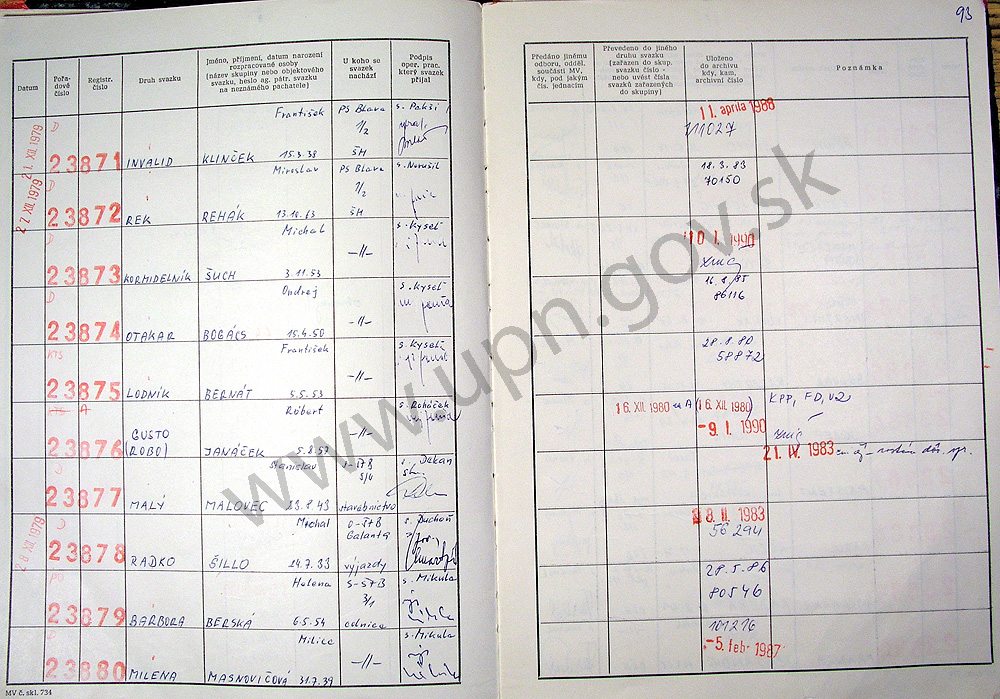 93
Datum
Pořadové číslo
Registr. číslo
Druh svazku
Jméno, příjmení, datum narození rozpracované osoby (název skupiny nebo objektového svazku, heslo ag. pátr. svazku na neznámého pachatele)
U koho se svazek nachází
Podpis oper. prac. který svazek přijal
Předáno jinému odboru, odděl. součásti MV, kdy, pod jakým čís. jednacím
Převedeno do jiného druhu svazku (zařazen do skup. svazku číslo - nebo uvést čísla svazků zařazených do skupiny)
Uloženo do archivu kdy, kam, archivní číslo
Poznámka
21. XII 1979
D
23871 INVALID
František
KLINČEK 15.3.38
PS Blava
1/2
ŠH
s. Pakši
11. apríla 1988
711027
27 XII 1979
D
23872 REK
Miroslav
REHÁK 13.10.63
PS Blava
1/2
ŠH
s. Norušil
18.3.83
70150
D
23873 KORMIDELNÍK
Michal
ŠUCH 3.11.53
-//-
s. Kyseľ
10 I. 1990
D
23874 OTAKAR
Ondrej
BOGÁCS 15.4.50
-//-
s. Kyseľ
86116
KTS
23875 LODNÍK
František
BERNÁT 5.5.53
-//-
s. Kyseľ
28.8.80
58872
A
23876 GUSTO
(ROBO)
Róbert
JANÁČEK 5.8.57
-//-
s. Roháček
16. XII. 1980 na A (16. XII. 1980)
-9. I. 1990
KPP, FD, V2
21. IV. 1983
D
23877 MALÝ
Stanislav
MALOVEC 23.8.43
stavebníctvo
s. Dekan
28 XII 1979
D
23878 RADKO
Michal
ŠILLO 24.7.33
O-ŠTB
Galanta
výjazdy
s. Duchoň
28. II. 1983
56294
PO
23879 BARBORA
Helena
BERSKÁ 6.5.54
S-ŠTB
3/1
ednice
s. Mikula
28.5.86
80546
23880 MILENA
Milica
MASNOVIČOVÁ 31.7.39
-//-
s. Mikula
101276
-5. feb. 1987
MV č. skl. 734
www.upn.gov.sk